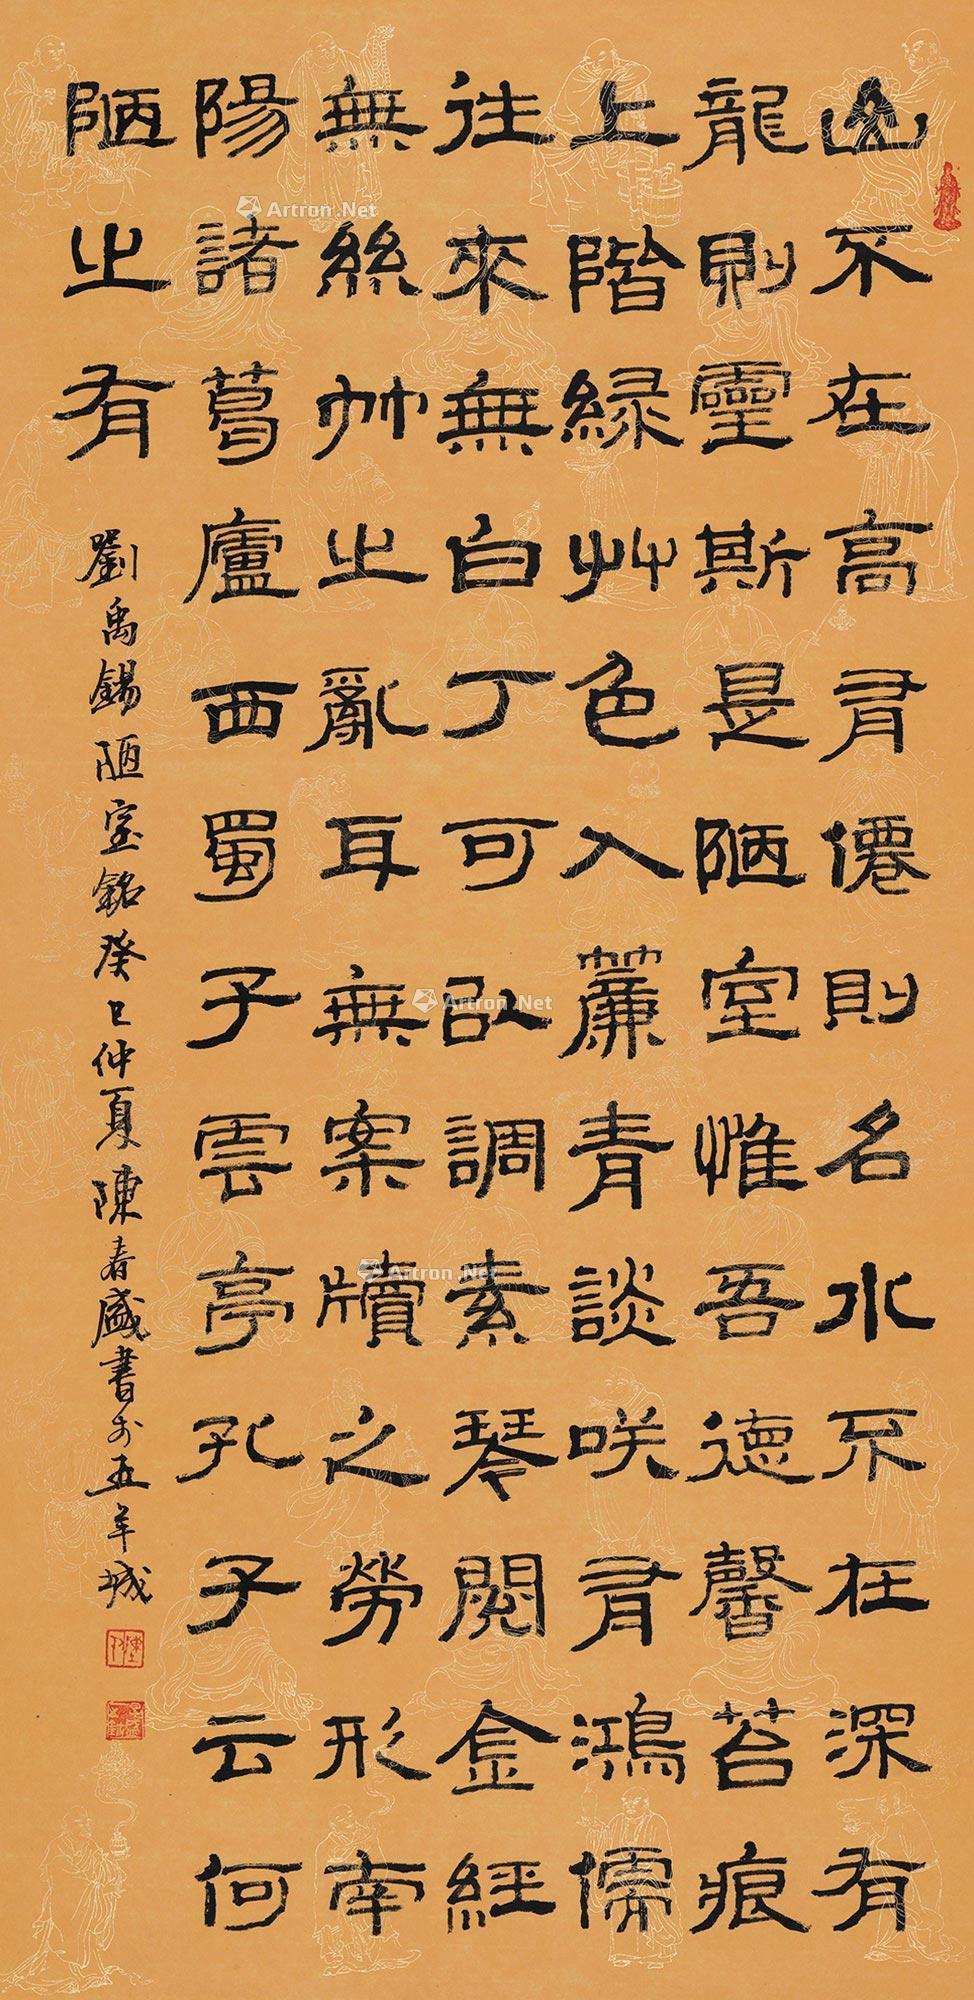 山不在高有僊則名水不在深有
龍則靈斯是陋室惟吾德馨苔痕
上階緑艸色入簾青談咲有鴻儒
往來無白丁可以調素琴閲金經
無絲竹之亂耳無案牘之勞形南
陽諸葛廬西蜀子雲亭孔子云何
陋之有
劉禹錫陋室銘癸巳仲夏陳春盛書於五羊城
Artron.Net
Artron.Net
Artron.Net